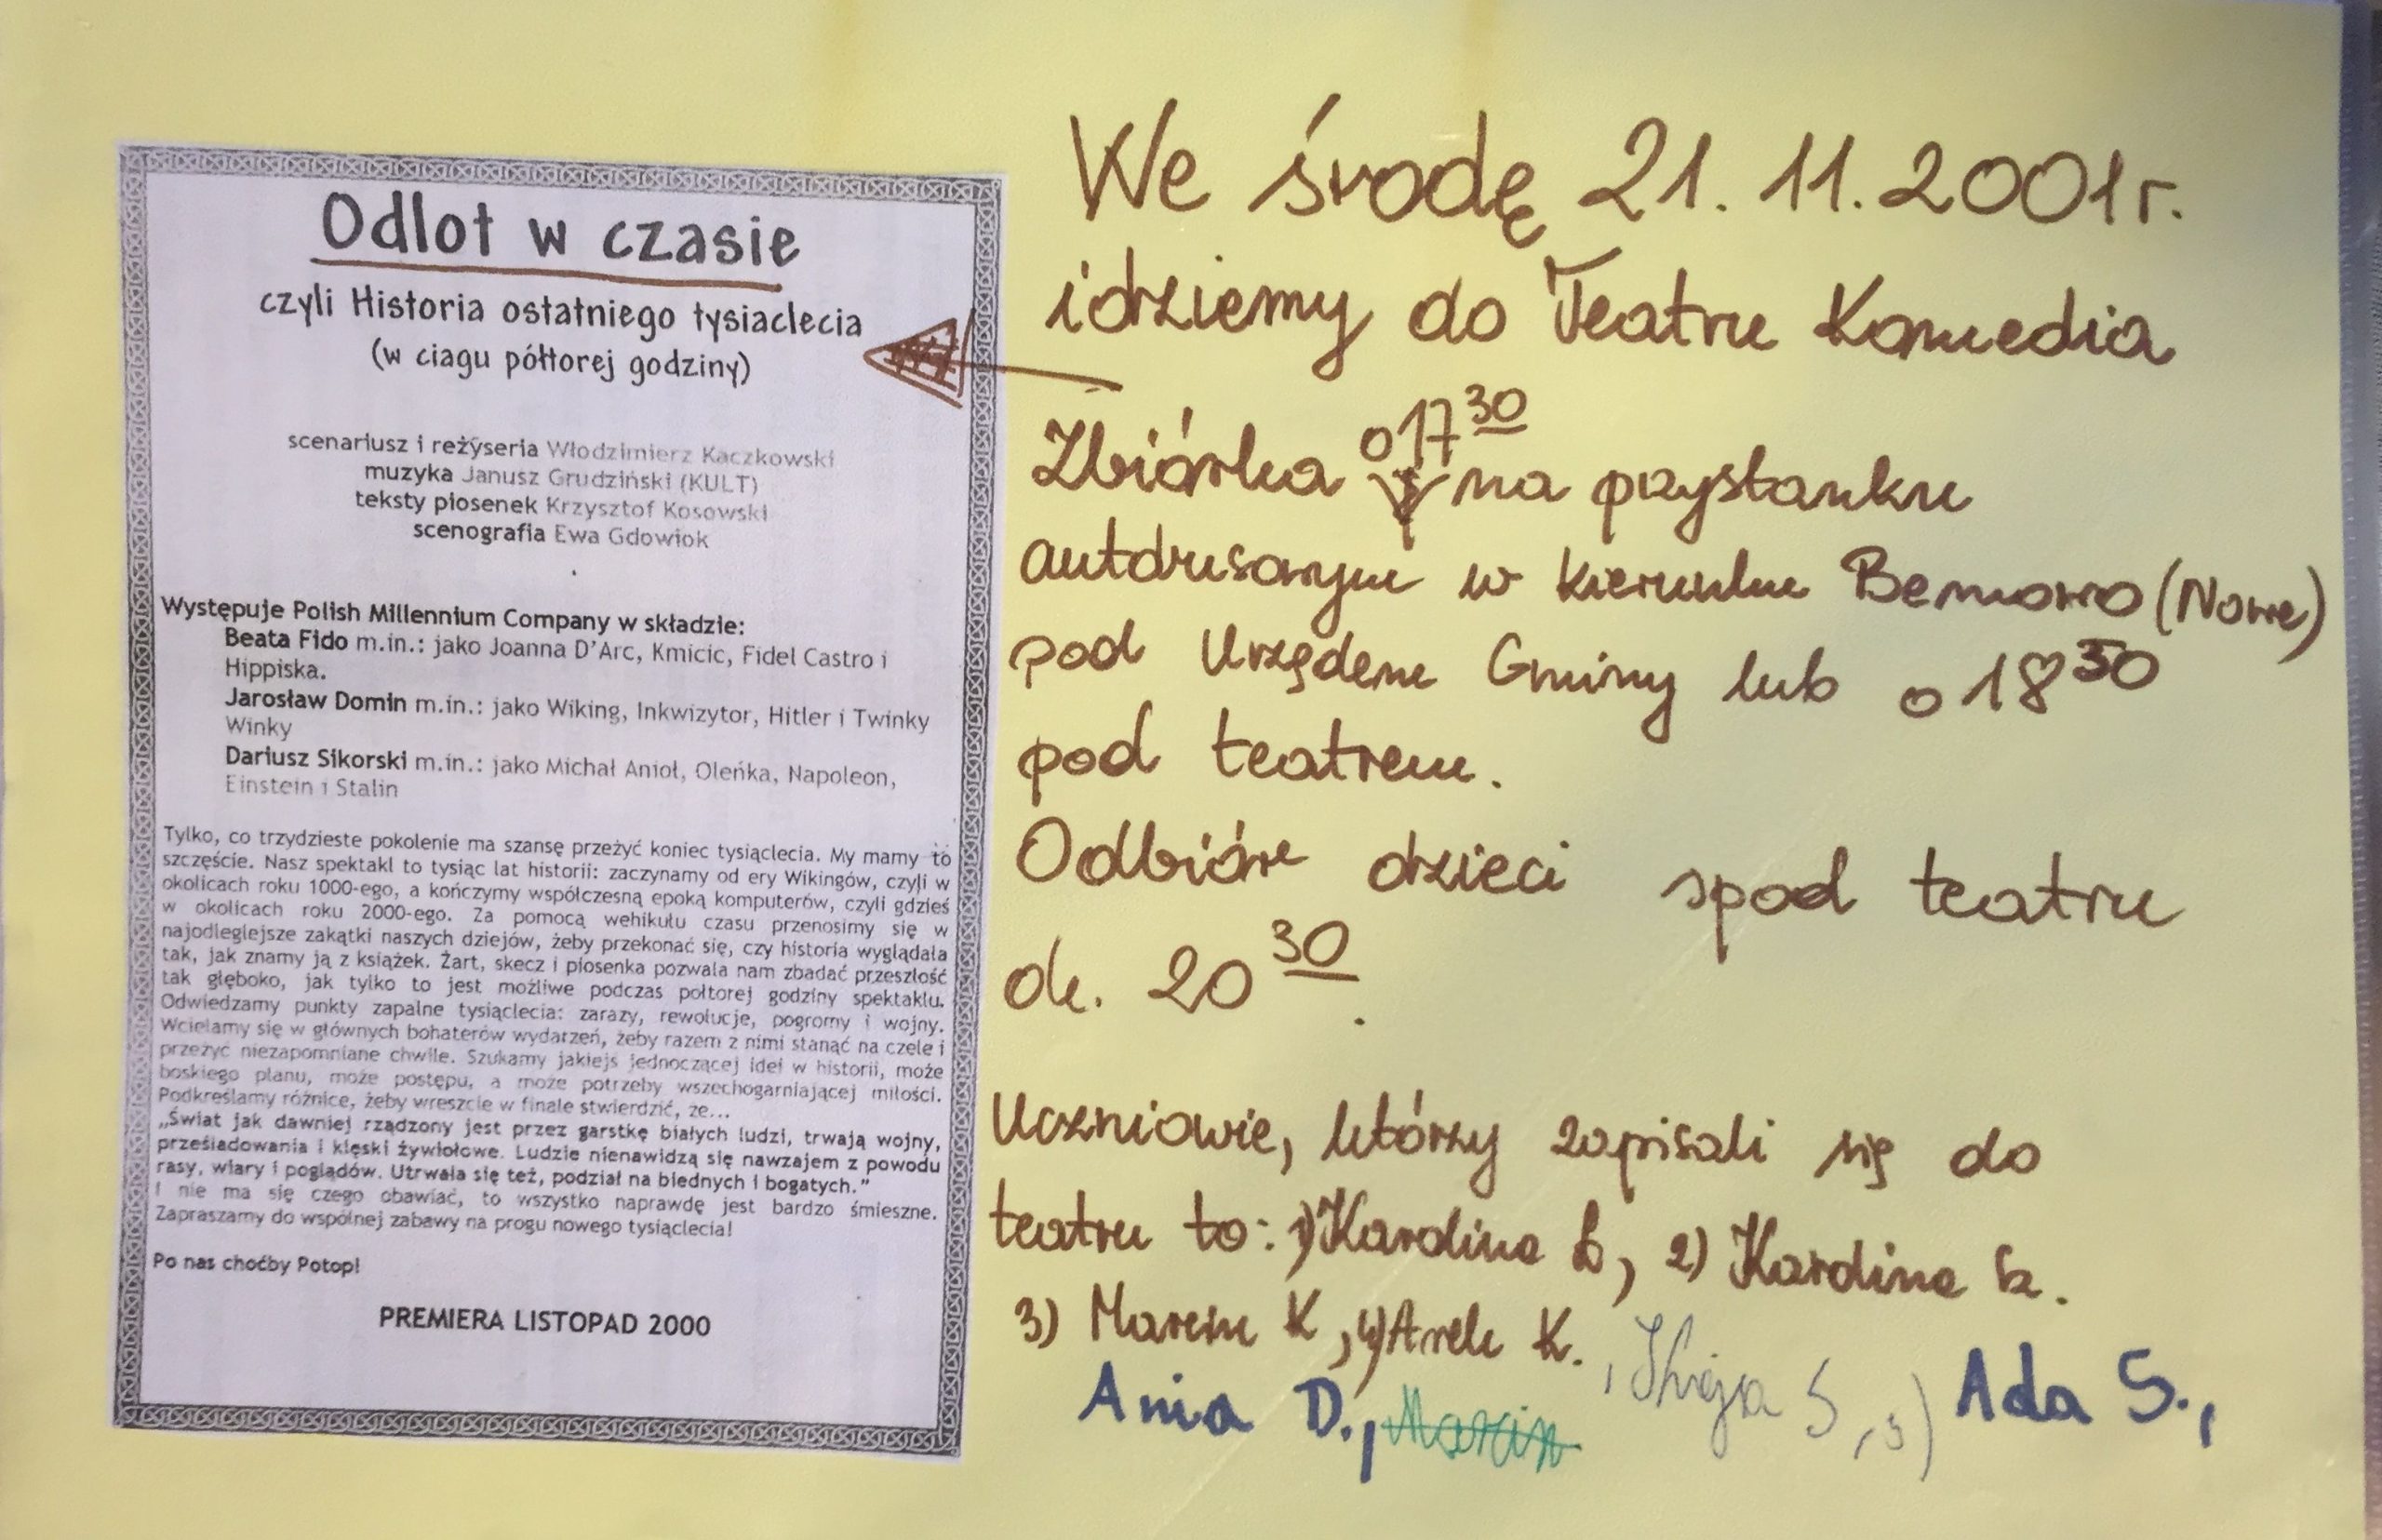 Odlot w czasie
czyli Historia ostatniego tysiaclecia
(w ciagu półtorej godziny)
scenariusz i reżyseria Włodzimierz Kaczkowski
muzyka Janusz Grudziński (KULT)
teksty piosenek Krzysztof Kosowski
scenografia Ewa Gdowiok
Występuje Polish Millennium Company w składzie:
Beata Fido m.in.: jako Joanna D'Arc, Kmicic, Fidel Castro i
Hippiska.
Jarosław Domin m.in.: jako Wiking, Inkwizytor, Hitler i Twinky
Winky
Dariusz Sikorski m.in.: jako Michał Anioł, Oleńka, Napoleon,
Einstein i Stalin
Tylko, co trzydzieste pokolenie ma szansę przeżyć koniec tysiąclecia. My mamy to
szczęście. Nasz spektakl to tysiąc lat historii: zaczynamy od ery Wikingów, czyli w
okolicach roku 1000-ego, a kończymy współczesną epoką komputerów, czyli gdzieś
w okolicach roku 2000-ego. Za pomocą wehikułu czasu przenosimy się w
najodleglejsze zakątki naszych dziejów, żeby przekonać się, czy historia wyglądała
tak, jak znamy ją z książek. Żart, skecz i piosenka pozwala nam zbadać przeszłość
tak głęboko, jak tylko to jest możliwe podczas półtorej godziny spektaklu.
Odwiedzamy punkty zapalne tysiąclecia: zarazy, rewolucje, pogromy i wojny.
Wcielamy się w głównych bohaterów wydarzeń, żeby razem z nimi stanąć na czele i
przeżyć niezapomniane chwile. Szukamy jakiejś jednoczącej idei w historii, może
boskiego planu, może postępu, a może potrzeby wszechogarniającej miłości.
Podkreślamy różnice, żeby wreszcie w finale stwierdzić, że...
„Świat jak dawniej rządzony jest przez garstkę białych ludzi, trwają wojny,
prześladowania i klęski żywiołowe. Ludzie nienawidzą się nawzajem z powodu
rasy, wiary i poglądów. Utrwala się też, podział na biednych i bogatych."
I nie ma się czego obawiać, to wszystko naprawdę jest bardzo śmieszne.
Zapraszamy do wspólnej zabawy na progu nowego tysiąclecia!
Po nas choćby Potop!
PREMIERA LISTOPAD 2000
We środę 21.11.2001r.
idziemy do Teatru Komedia
Zbiórka o 17 30 na przystanku
autobusowym w kierunku Bemowo (Nowe)
pod Urzędem Gminy lub o 18 30
pod teatrem.
Odbiór dzieci spod teatru
ok. 20 30.
Uczniowie, którzy zapisali się do
teatru to: 1) Karolina Ł, 2) Karolina
3) Marcin K, 4) Arek K.,
S, 5) Ada S.,
Ania D., Marcin